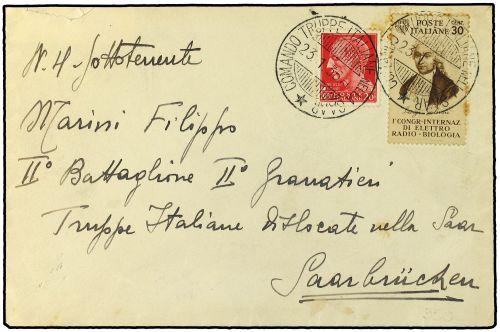 N. 4 - Sottotenente
Marini Filippo
II° Battaglione II° Granatieri
Truppe Italiane dislocate nella Saar
Saarbrücken
COMANDO TRUPPE ITALIANE NELLA SAAR
23
POSTE ITALIANE
CENT. 30
23
SAAR
I° CONGR·INTERNAZ
DI ELETTRO
RADIO-BIOLOGIA